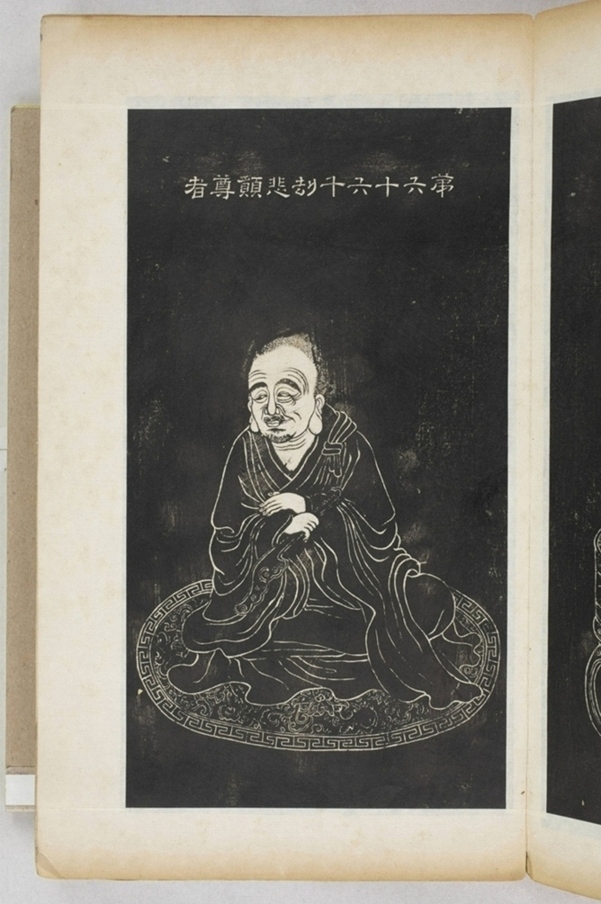 第六十六千劫悲願尊者